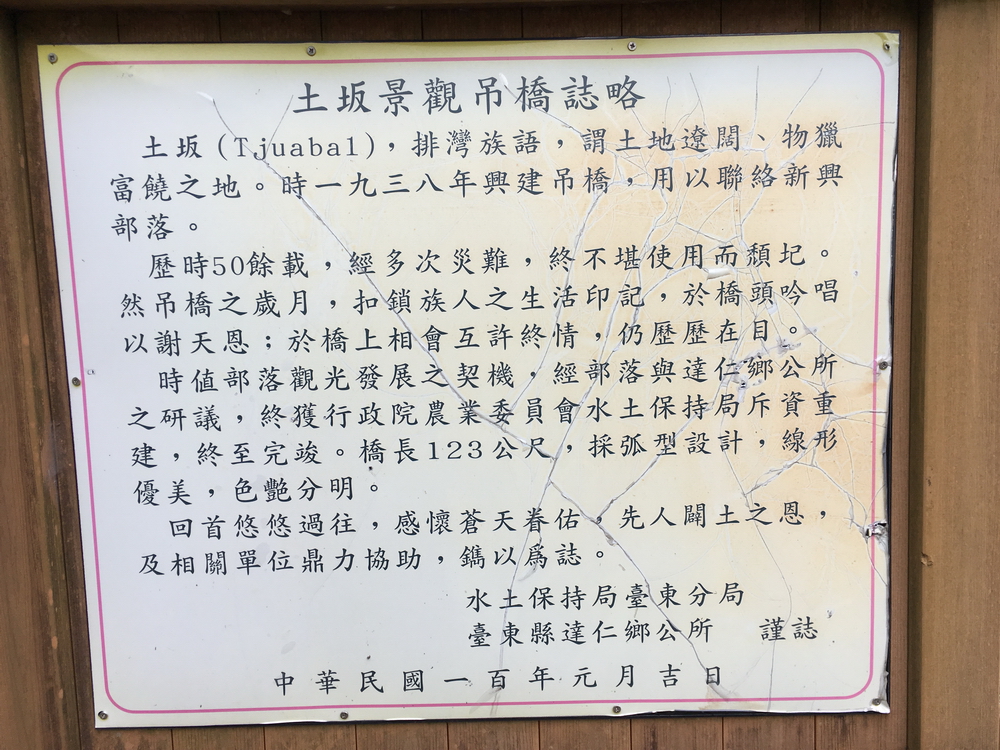 土坂景觀吊橋誌略
土坂(Tjuabal),排灣族語,謂土地遼闊、物獵
富饒之地。時一九三八年興建吊橋,用以聯絡新興
部落。
歷時50餘載,經多次災難,終不堪使用而頹圮。
然吊橋之歲月,扣鎖族人之生活印記,於橋頭吟唱
以謝天恩;於橋上相會互許終情,仍歷歷在目。
時值部落觀光發展之契機,經部落與達仁鄉公所
之研議,終獲行政院農業委員會水土保持局斥資重
建,終至完竣。橋長123公尺,採弧型設計,線形
優美,色艷分明。
回首悠悠過往,感懷蒼天眷佑,先人闢土之恩,
及相關單位鼎力協助,鐫以為誌。
水土保持局臺東分局
臺東縣達仁鄉公所 謹誌
中華民國一百年元月吉日